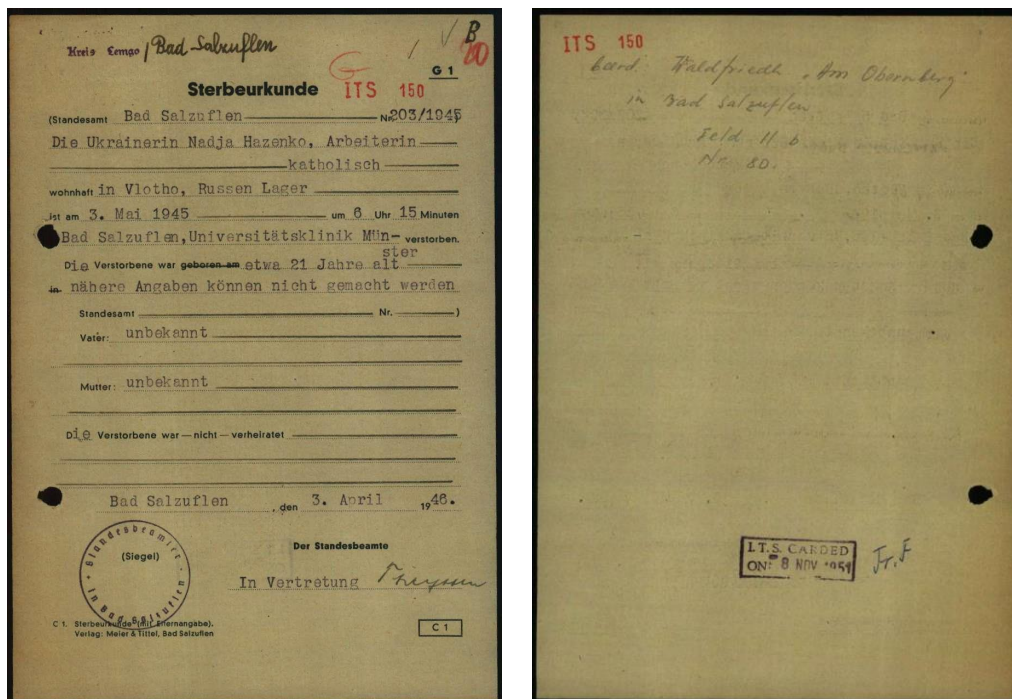 Kreis Lemgo / Bad Salzuflen
B
20
G 1
Sterbeurkunde
ITS 150
(Standesamt Bad Salzuflen Nr. 203/1945)
Die Ukrainerin Nadja Hazenko, Arbeiterin
katholisch
wohnhaft in Vlotho, Russen Lager
ist am 3. Mai 1945 um 6 Uhr 15 Minuten
Bad Salzuflen, Universitätsklinik Mün-
ster
verstorben.
Die Verstorbene war geboren am etwa 21 Jahre alt
in nähere Angaben können nicht gemacht werden
Standesamt Nr. )
Vater: unbekannt
Mutter: unbekannt
Die Verstorbene war — nicht — verheiratet
Bad Salzuflen, den 3. April 1946.
Standesbeamter in Bad Salzuflen
(Siegel)
Der Standesbeamte
In Vertretung
C 1. Sterbeurkunde (mit Elternangabe).
Verlag: Meier & Tittel, Bad Salzuflen
C 1
ITS 150
beerd. Waldfriedh. "Am Obernberg"
in Bad Salzuflen
Feld II b
Nr. 80.
I.T.S. CARDED
ON: 8 NOV 1951
Fr. F